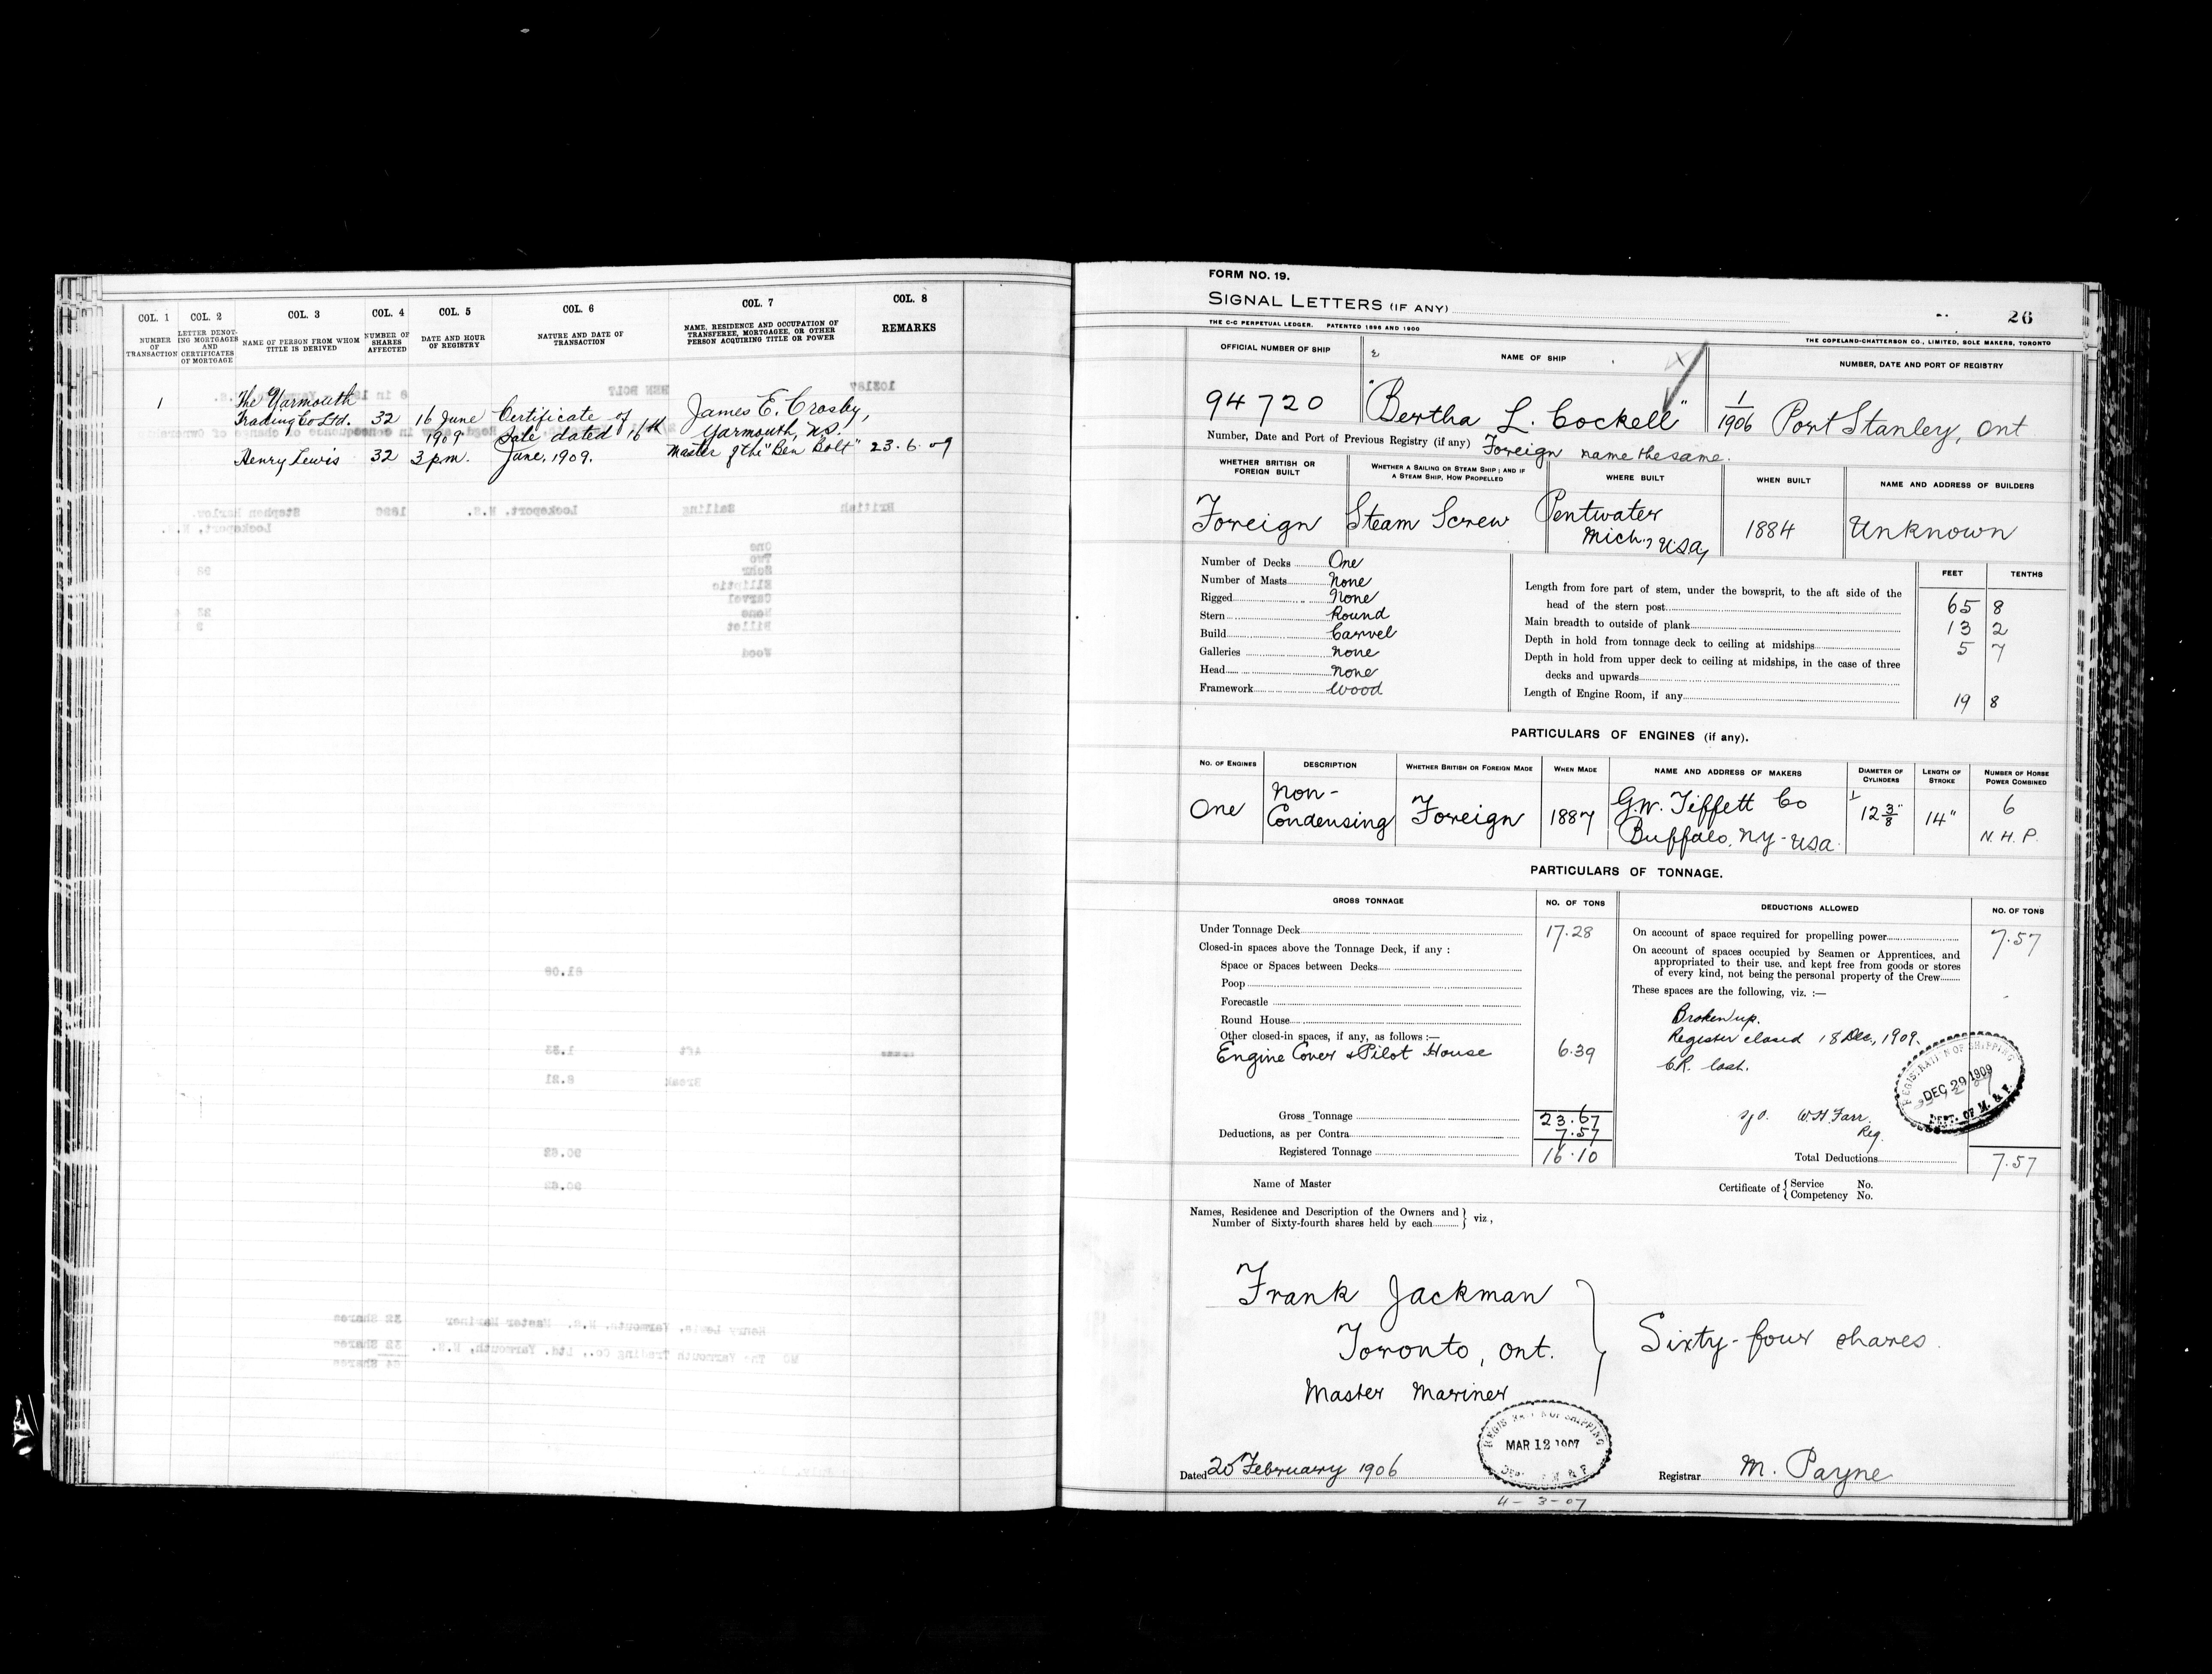 COL. 1 COL. 2 COL. 3 COL. 4 COL. 5 COL. 6 COL. 7 COL. 8
NUMBER OF TRANSACTION
LETTER DENOTING MORTGAGES AND CERTIFICATES OF MORTGAGE
NAME OF PERSON FROM WHOM TITLE IS DERIVED
NUMBER OF SHARES AFFECTED
DATE AND HOUR OF REGISTRY
NATURE AND DATE OF TRANSACTION
NAME, RESIDENCE AND OCCUPATION OF TRANSFEREE, MORTGAGEE, OR OTHER PERSON ACQUIRING TITLE OR POWER
REMARKS
1 The Yarmouth James E. Crosby,
Trading Co Ltd. 32 16 June Certificate of Yarmouth, N.S.
1909 Sale dated 16th
Henry Lewis 32 3 p.m. June, 1909. Master of the "Ben Bolt" 23.6.09
FORM NO. 19.
SIGNAL LETTERS (IF ANY)
26
THE C-C PERPETUAL LEDGER. PATENTED 1896 AND 1900
THE COPELAND-CHATTERSON CO., LIMITED, SOLE MAKERS, TORONTO
OFFICIAL NUMBER OF SHIP NAME OF SHIP NUMBER, DATE AND PORT OF REGISTRY
94720 "Bertha L. Cockell" 1/1906 Port Stanley, Ont
Number, Date and Port of Previous Registry (if any) Foreign name the same.
WHETHER BRITISH OR FOREIGN BUILT
WHETHER A SAILING OR STEAM SHIP; AND IF A STEAM SHIP, HOW PROPELLED
WHERE BUILT WHEN BUILT NAME AND ADDRESS OF BUILDERS
Foreign Steam Screw Pentwater Mich., U.S.A, 1884 Unknown
FEET TENTHS
Number of Decks One
Number of Masts None
Rigged None
Stern Round
Build Carvel
Galleries None
Head None
Framework Wood
Length from fore part of stem, under the bowsprit, to the aft side of the
head of the stern post 65 8
Main breadth to outside of plank 13 2
Depth in hold from tonnage deck to ceiling at midships 5 7
Depth in hold from upper deck to ceiling at midships, in the case of three
decks and upwards
Length of Engine Room, if any 19 8
PARTICULARS OF ENGINES (if any).
NO. OF ENGINES DESCRIPTION WHETHER BRITISH OR FOREIGN MADE WHEN MADE NAME AND ADDRESS OF MAKERS DIAMETER OF CYLINDERS LENGTH OF STROKE NUMBER OF HORSE POWER COMBINED
One Non-Condensing Foreign 1887 G.W. Tiffett Co Buffalo, N.Y - U.S.A. 1 12 3/8" 14" 6 N.H.P.
PARTICULARS OF TONNAGE.
GROSS TONNAGE NO. OF TONS DEDUCTIONS ALLOWED NO. OF TONS
Under Tonnage Deck 17.28
Closed-in spaces above the Tonnage Deck, if any :
Space or Spaces between Decks
Poop
Forecastle
Round House
Other closed-in spaces, if any, as follows :—
Engine Cover & Pilot House 6.39
Gross Tonnage 23.67
Deductions, as per Contra 7.57
Registered Tonnage 16.10
On account of space required for propelling power 7.57
On account of spaces occupied by Seamen or Apprentices, and
appropriated to their use, and kept free from goods or stores
of every kind, not being the personal property of the Crew
These spaces are the following, viz. :—
Broken up.
Register closed 18 Dec., 1909.
C.R. lost.
REGISTRATION OF SHIPPING
DEC 29 1909
DEPT. OF M. & F.
W.H. Farr.
Reg.
Total Deductions 7.57
Name of Master
Certificate of { Service No.
Competency No.
Names, Residence and Description of the Owners and
Number of Sixty-fourth shares held by each } viz,
Frank Jackman
Toronto, Ont. Sixty-four shares.
Master Mariner
REGISTRATION OF SHIPPING
MAR 12 1907
DEPT. OF M. & F.
Dated 25 February 1906
Registrar M. Payne
4-3-07